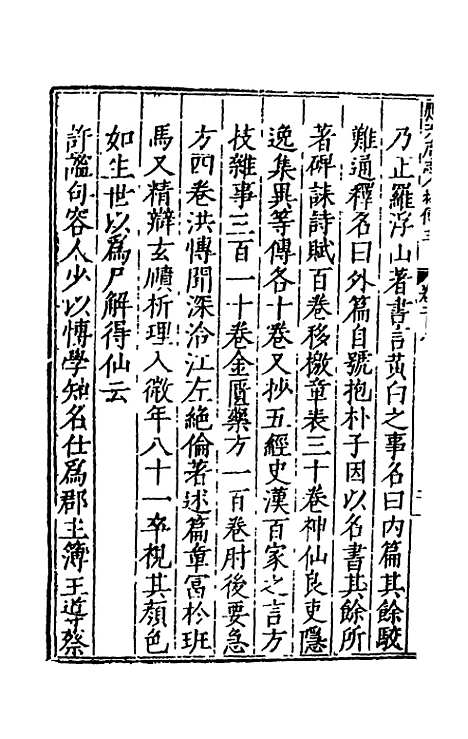 乃止羅浮山著書言黃白之事名曰內篇其餘駮
難通釋名曰外篇自號抱朴子因以名書其餘所
著碑誄詩賦百卷移檄章表三十卷神仙良吏隱
逸集異等傳各十卷又抄五經史漢百家之言方
技雜事三百一十卷金匱藥方一百卷肘後要急
方四卷洪博聞深洽江左絶倫著述篇章富於班
馬又精辯玄賾析理入微年八十一卒視其顏色
如生世以爲尸解得仙云
許謐句容人少以博學知名仕爲郡主簿王導蔡